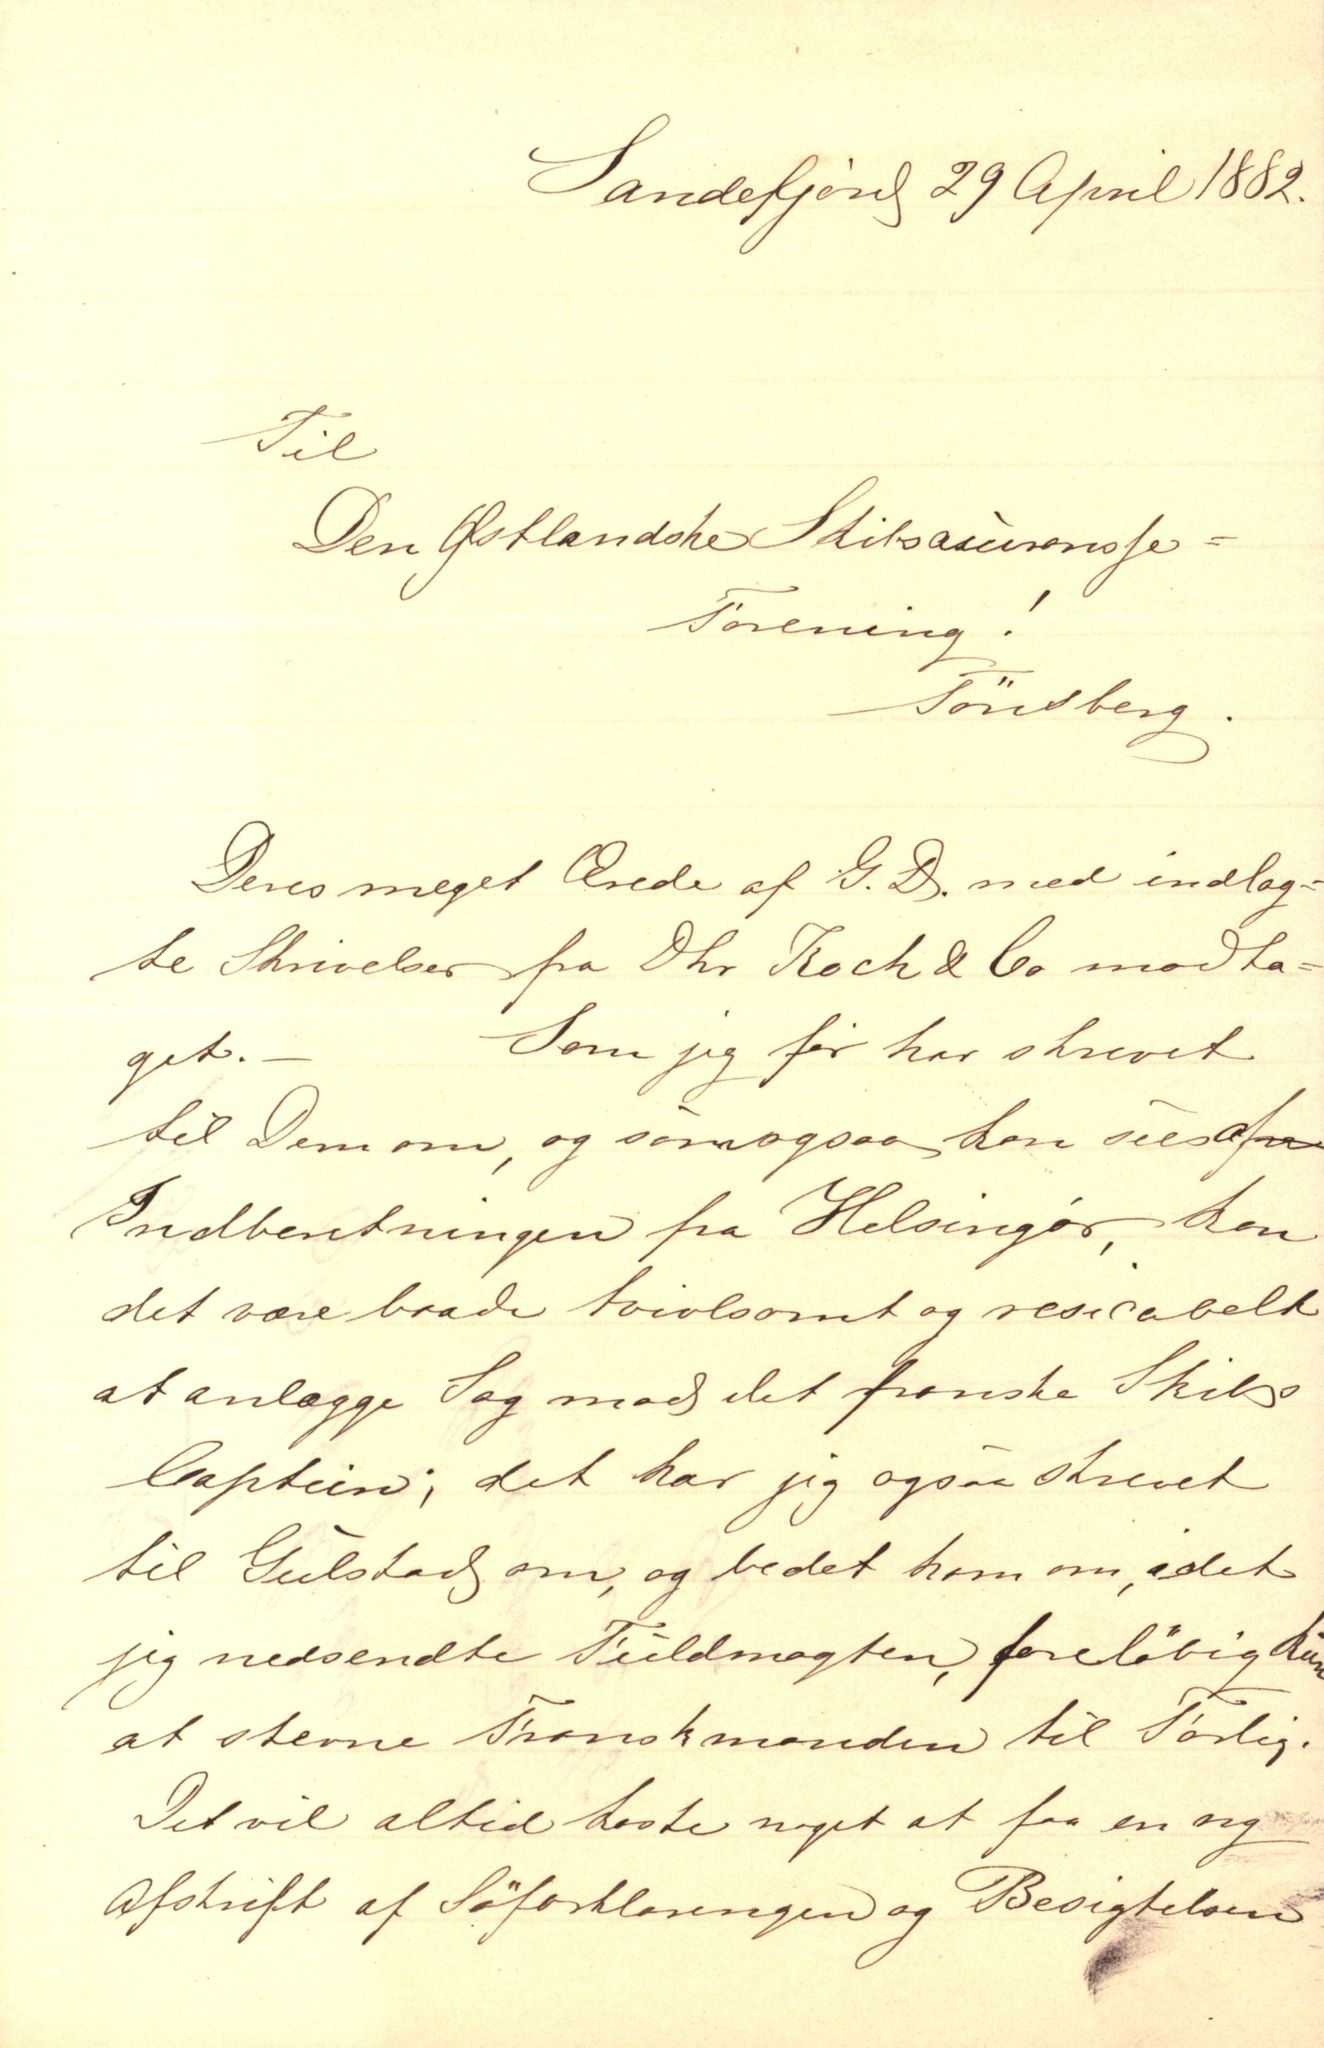 Sandefjord 29 April 1882.
Til
Den Østlandske Skibsassuransse=
Forening!
Tönsberg.
Deres meget Ærede af G. D. med indlag=
te Skrivelser fra Dhr Koch & Co modta=
get. — Som jeg før har skrevet
til Dem om, og som ogsaa kan sees af
Indberetningen fra Helsingør, kan
det være baade tvivlsomt og resicabelt
at anlægge Sag mod det franske Skibs
Captein; det har jeg ogsaa skrevet
til Gulstad om, og bedet ham om, idet
jeg nedsendte Fuldmagten, foreløbig kun
at stevne Franskmanden til Forlig.
Det vil altid koste noget at faa en ny
Afskrift af Söforklaringen og Besigtelsen